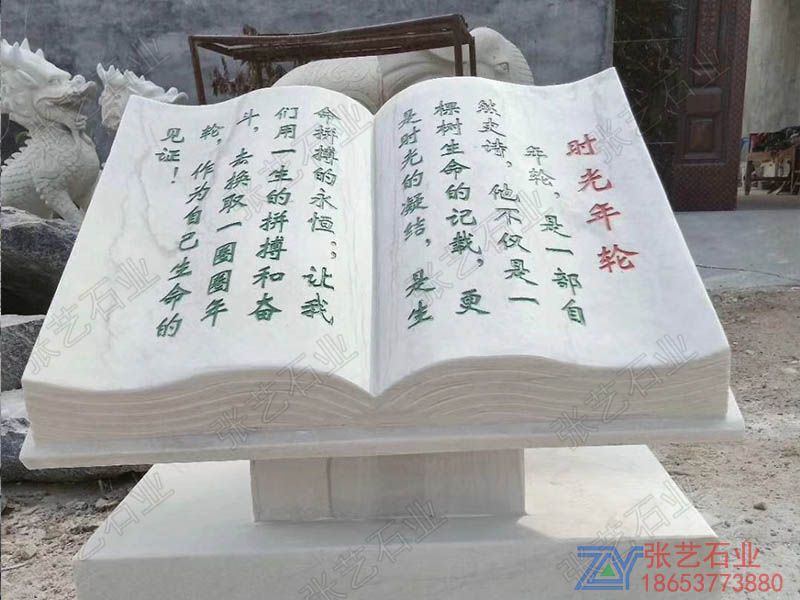 时光年轮
年轮，是一部自
然史诗，他不仅是一
棵树生命的记载，更
是时光的凝结，是生
命拼搏的永恒；让我
们用一生的拼搏和奋
斗，去换取一圈圈年
轮，作为自己生命的
见证！
张艺石业
18653773880